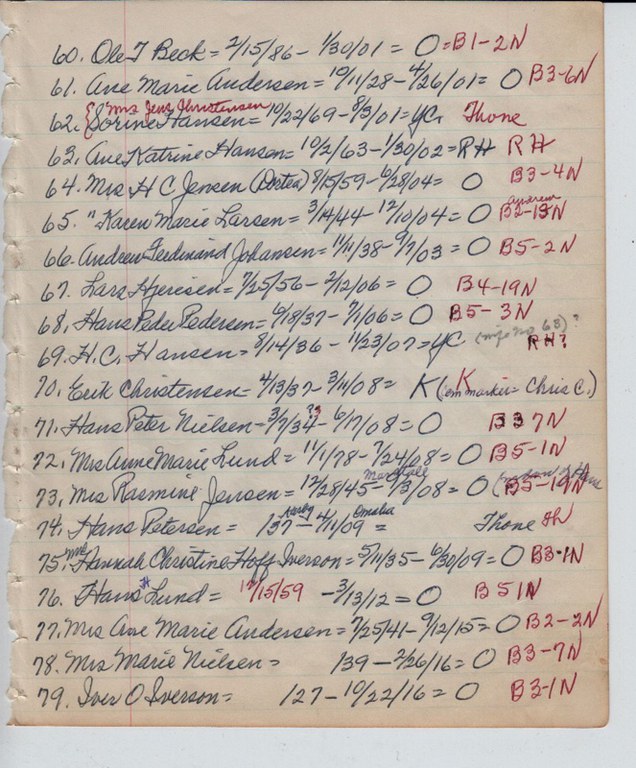 60. Ole T Beck = 2/15/86 - 1/30/01 = O = B1-2N
61. Ane Marie Andersen = 10/11/28 - 4/26/01 = O B3-6N
{Mrs Jens Christensen
62. Sorine Hansen = 10/22/69 - 8/3/01 = YC, Thone
63. Ane Katrine Hansen = 10/2/63 - 1/30/02 = RH RH
64. Mrs H C Jensen (Dortea) 8/15/59 - 6/28/04 = O B3-4N
Andrew
65. " Karen Marie Larsen = 3/14/44 - 12/10/04 = O B2-13N
66. Andrew Ferdinand Johansen = 11/11/38 - 9/7/03 = O B5-2N
67. Lars Hjeresen = 7/25/56 - 2/12/06 = O B4-19N
68, Hans Peter Pedersen = 6/18/37 - 7/1/06 = O B5-3N
69. H. C. Hansen = 8/14/36 - 11/23/07 = YC (wife No 63)?
RH?
70, Erik Christensen = 4/13/37 - 3/14/08 = K K (on marker = Chris C.)
71. Hans Peter Nielsen = 3/7/34 - 6/17/08 = O B3 7N
72. Mrs Anne Marie Lund = 11/1/78 - 7/24/08 = O B5-1N
73, Mrs Rasmine Jensen = 12/28/45 - 1/3/08 = O (widow of Hans B2-19N
74. Hans Petersen = 137 - 4/11/09 = Omaha Thone Th
75. Mrs Hannah Christine Hoff Iverson = 5/11/35 - 6/30/09 = O B3-1N
76. Hans H Lund = 12/15/59 - 3/13/12 = O B5 1N
77. Mrs Ane Marie Andersen = 7/25/41 - 9/12/15 = O B2-2N
78. Mrs Marie Nielsen = 139 - 2/26/16 = O B3-7N
79. Iver O Iverson = 127 - 10/22/16 = O B3-1N